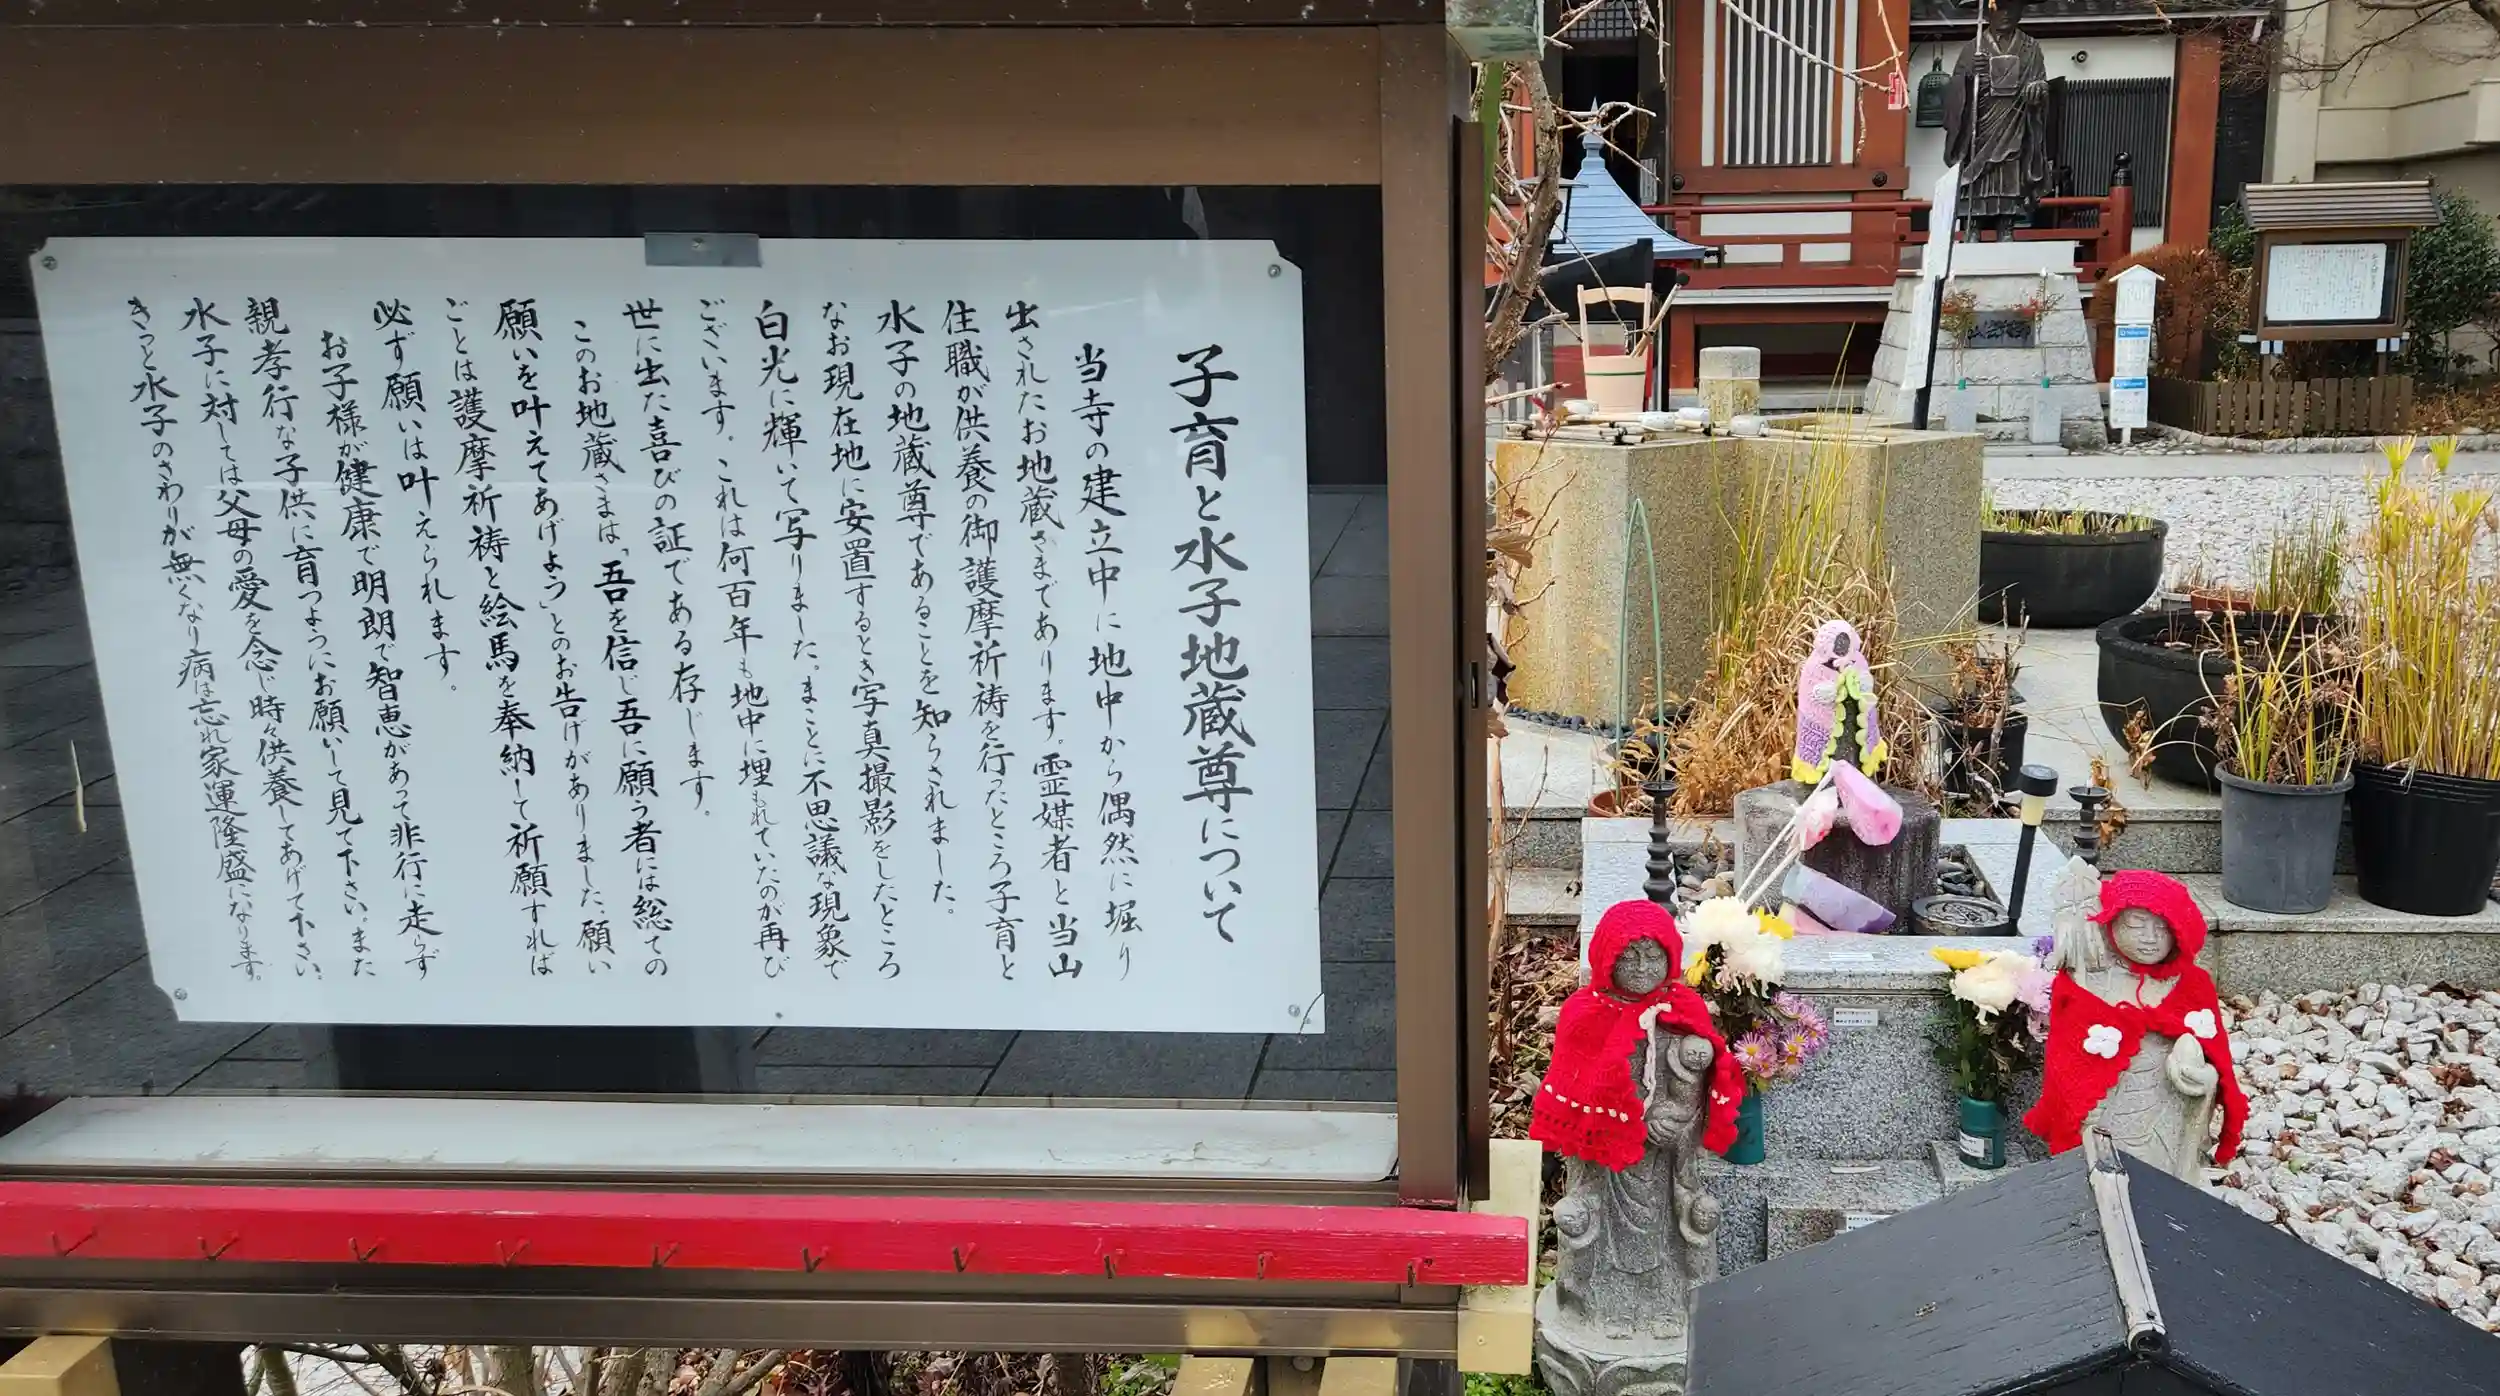 子育と水子地蔵尊について
当寺の建立中に地中から偶然に堀り
出されたお地蔵さまであります。霊媒者と当山
住職が供養の御護摩祈祷を行ったところ子育と
水子の地蔵尊であることを知らされました。
なお現在地に安置するとき写真撮影をしたところ
白光に輝いて写りました。まことに不思議な現象で
ございます。これは何百年も地中に埋もれていたのが再び
世に出た喜びの証である存じます。
このお地蔵さまは「吾を信じ吾に願う者には総ての
願いを叶えてあげよう」とのお告げがありました、願い
ごとは護摩祈祷と絵馬を奉納して祈願すれば
必ず願いは叶えられます。
お子様が健康で明朗で智恵があって非行に走らず
親孝行な子供に育つようにお願いして見て下さい。また
水子に対しては父母の愛を念じ時々供養してあげて下さい。
きっと水子のさわりが無くなり病は忘れ家運隆盛になります。